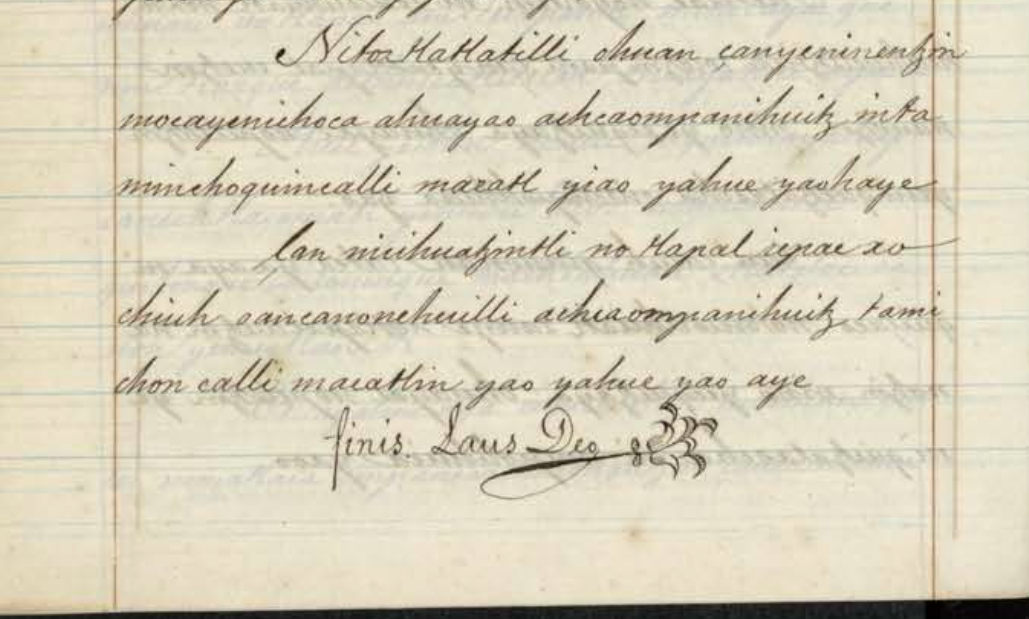 Nitoztlatlatilli ohuan çanyeninentzin
mocayenichoca ahuayao achcaompanihuitz inta
minchoquincalli macatl yiao yahue yaohaye
Çan nicihuatzintli no tlapal icpac xo
chiuh çancanonchuilli achcaompanihuitz tami
chon calli macatlin yao yahue yao aye
finis. Laus Deo